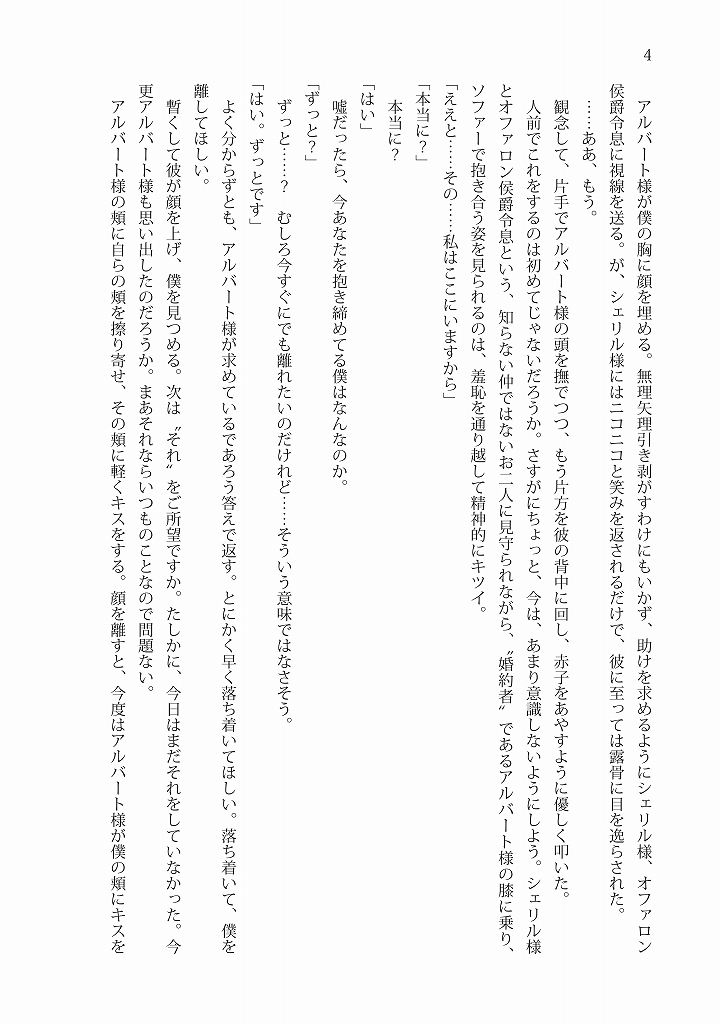 4
　アルバート様が僕の胸に顔を埋める。無理矢理引き剥がすわけにもいかず、助けを求めるようにシェリル様、オファロン
侯爵令息に視線を送る。が、シェリル様にはニコニコと笑みを返されるだけで、彼に至っては露骨に目を逸らされた。
　……ああ、もう。
　観念して、片手でアルバート様の頭を撫でつつ、もう片方を彼の背中に回し、赤子をあやすように優しく叩いた。
　人前でこれをするのは初めてじゃないだろうか。さすがにちょっと、今は、あまり意識しないようにしよう。シェリル様
とオファロン侯爵令息という、知らない仲ではないお二人に見守られながら、〝婚約者〟であるアルバート様の膝に乗り、
ソファーで抱き合う姿を見られるのは、羞恥を通り越して精神的にキツイ。
「ええと……その……私はここにいますから」
「本当に？」
　本当に？
「はい」
　嘘だったら、今あなたを抱き締めてる僕はなんなのか。
「ずっと？」
　ずっと……？　むしろ今すぐにでも離れたいのだけれど……そういう意味ではなさそう。
「はい。ずっとです」
　よく分からずとも、アルバート様が求めているであろう答えで返す。とにかく早く落ち着いてほしい。落ち着いて、僕を
離してほしい。
　暫くして彼が顔を上げ、僕を見つめる。次は〝それ〟をご所望ですか。たしかに、今日はまだそれをしていなかった。今
更アルバート様も思い出したのだろうか。まあそれならいつものことなので問題ない。
　アルバート様の頬に自らの頬を擦り寄せ、その頬に軽くキスをする。顔を離すと、今度はアルバート様が僕の頬にキスを